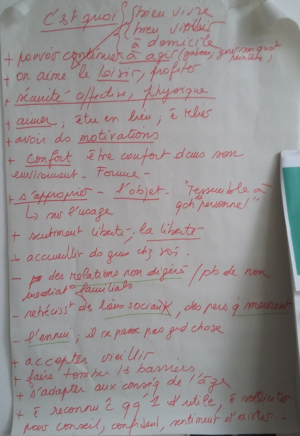 C'est quoi { bien vivre
bien vieillir
à domicile
+ pouvoir continuer à agir
+ on aime le loisir, profiter
+ sécurité affective, physique
+ aimer, être en lien, è relié
+ avoir des motivations
+ confort être confort dans son
environnement.
+ s'approprier - l'objet. "ressemble à
↳ sur l'usage qch personnel"
+ sentiment liberté, la liberté
- accueillir chez soi.
- des relations non digéré / pb de non
familiales
- rétréciss des liens sociaux, des pers q meurent
- l'ennui, il se passe pas gd chose
+ accepter vieillir
+ faire tomber ls barrières
+ s'adapter aux conséq de l'âge
+ è reconnu qq'1 d'utile, è sollicité
pour conseil, confident, sentiment d'exister